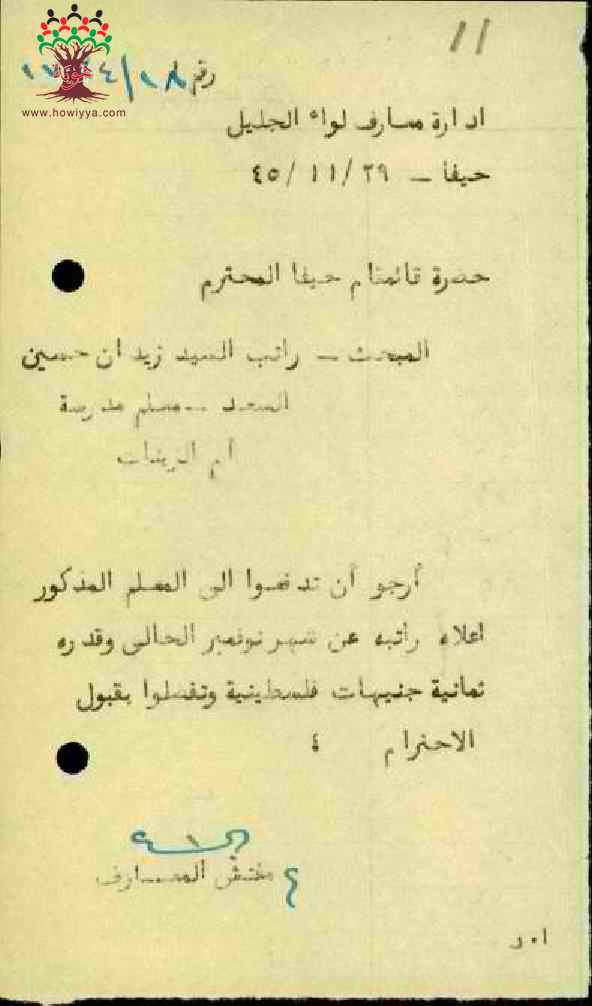 11
هوية
www.howiyya.com
رقم
ادارة معارف لواء الجليل
حيفا _ ٢٩/ ١١/ ٤٥
حضرة قائمقام حيفا المحترم
المبحث _ راتب السيد زيدان حسين
السعد _ معلم مدرسة
أم الزينات
أرجو أن تدفعوا الى المعلم المذكور
اعلاه راتبه عن شهر نوفمبر الحالى وقدره
ثمانية جنيهات فلسطينية وتفضلوا بقبول
الاحترام ؛
ع مفتش المعارف